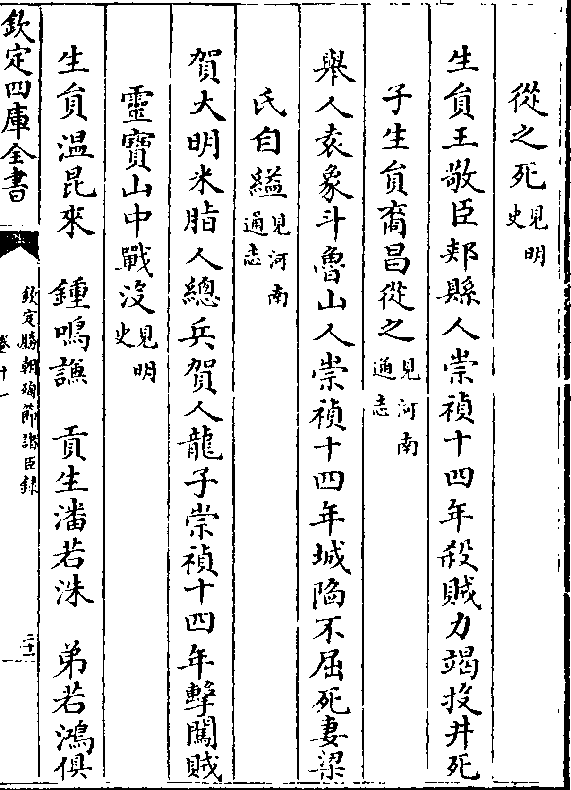 從之死見明史
生員王敬臣郟縣人崇禎十四年殺賊力竭投井死
子生員裔昌從之見河南通志
舉人袁象斗魯山人崇禎十四年城陷不屈死妻梁
氏自縊見河南通志
賀大明米脂人總兵賀人龍子崇禎十四年擊闖賊
靈寶山中戰沒見明史
生員溫昆來 鍾鳴謙 貢生潘若洙 弟若鴻俱
欽定四庫全書
欽定勝朝殉節諸臣錄
卷十一
三十二